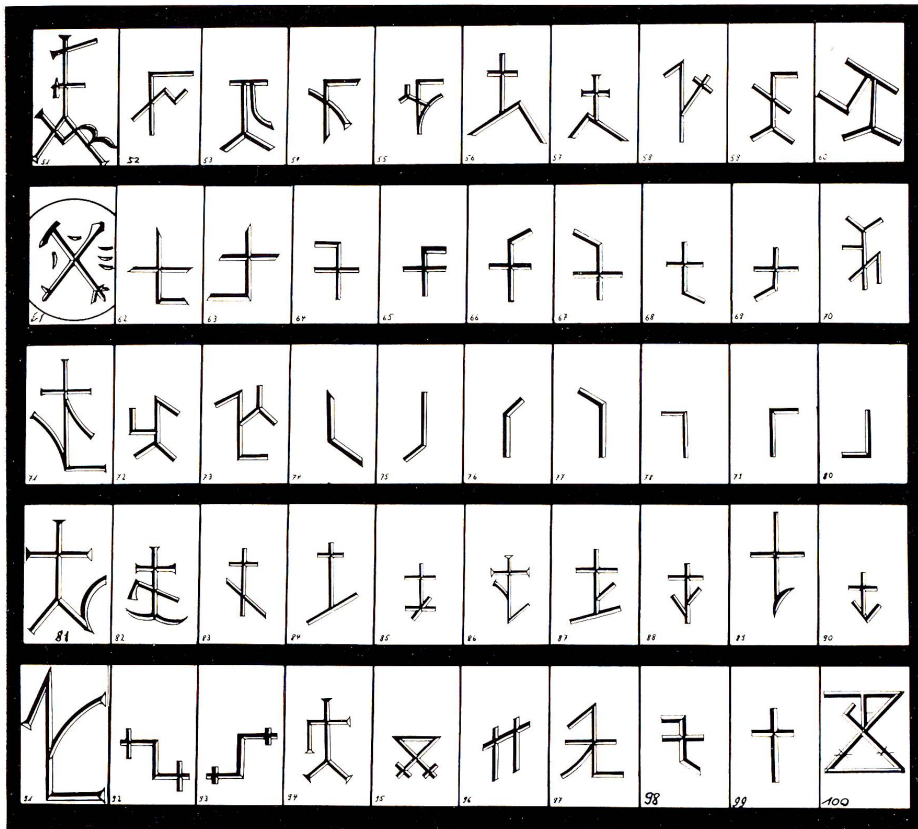 51 52 53 54 55 56 57 58 59 60
61 62 63 64 65 66 67 68 69 70
71 72 73 74 75 76 77 78 79 80
81 82 83 84 85 86 87 88 89 90
91 92 93 94 95 96 97 98 99 100